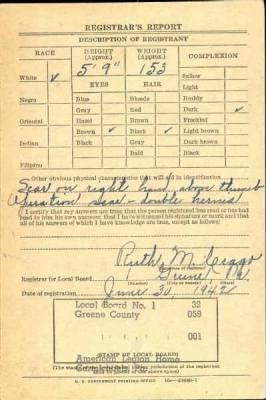 REGISTRAR'S REPORT
DESCRIPTION OF REGISTRANT
RACE HEIGHT (Approx.) WEIGHT (Approx.) COMPLEXION
White ✓ 5' 9" 153 Sallow
EYES HAIR Light
Negro Blue Blonde Ruddy
Gray Red Dark ✓
Oriental Hazel Brown Freckled
Brown ✓ Black ✓ Light brown
Indian Black Gray Dark brown
Bald Black
Filipino
Other obvious physical characteristics that will aid in identification
Scar on right hand above thumb
Operation scar - double hernia
(I certify that my answers are true; that the person registered has read or has had
read to him his own answers; that I have witnessed his signature or mark and that
all of his answers of which I have knowledge are true, except as follows:
Ruth M
Registrar for Local Board
Date of registration June 30, 1942
Local Board No. 1 32
Greene County 059
001
American Legion Home
(STAMP OF LOCAL BOARD)
U. S. GOVERNMENT PRINTING OFFICE